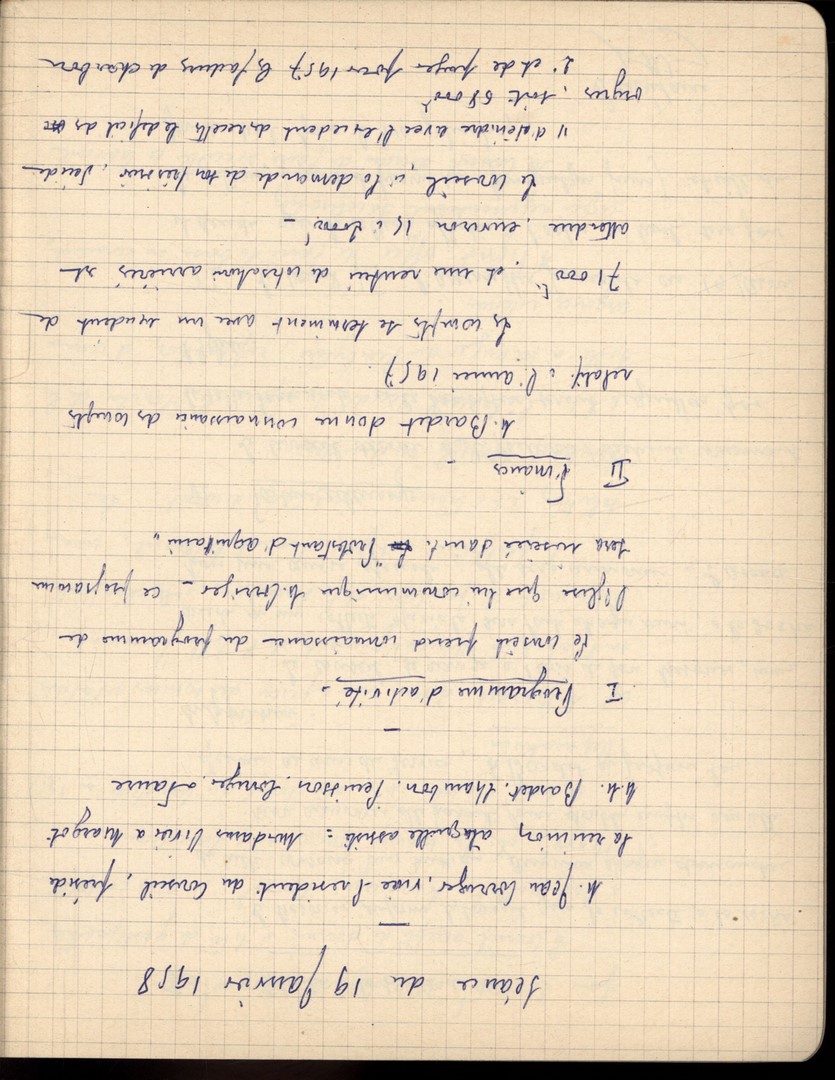 Séance du 19 Janvier 1958
M. Jean Corriger, vice Président du Conseil, préside
la réunion, à laquelle assiste : Mesdames Vivier et Margot
M.M. Bardet. Chambon. Penisson. Corriger. Faure
I Programme d'activité -
Le Conseil prend connaissance du programme de
l'Eglise que lui communique M. Corriger - ce programme
sera inséré dans le "Protestant d'aquitaine"
II Finances -
M. Bardet donne connaissance des compts
relatifs à l'année 1957
Les compts se terminent avec un excédent de
71000 F, et une rentrée de cotisations arriérés est
attendue, environ 15 à 20000f -
Le Conseil, à la demande de son trésorier, décide
1) d'éteindre avec l'excédent des recetts le déficit des
orgues, soit 58000f
2° et de payer pour 1957 les factures de charbon